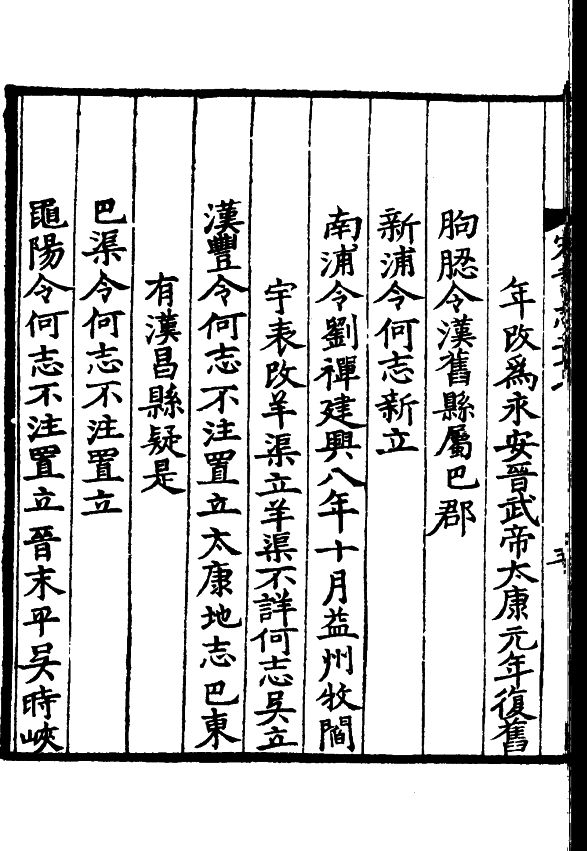 年改爲永安晉武帝太康元年復舊
朐䏰令漢舊縣屬巴郡
新浦令何志新立
南浦令劉禪建興八年十月益州牧閻
宇表改羊渠立羊渠不詳何志吳立
漢豐令何志不注置立太康地志巴東
有漢昌縣疑是
巴渠令何志不注置立
黽陽令何志不注置立晉末平吳時峽